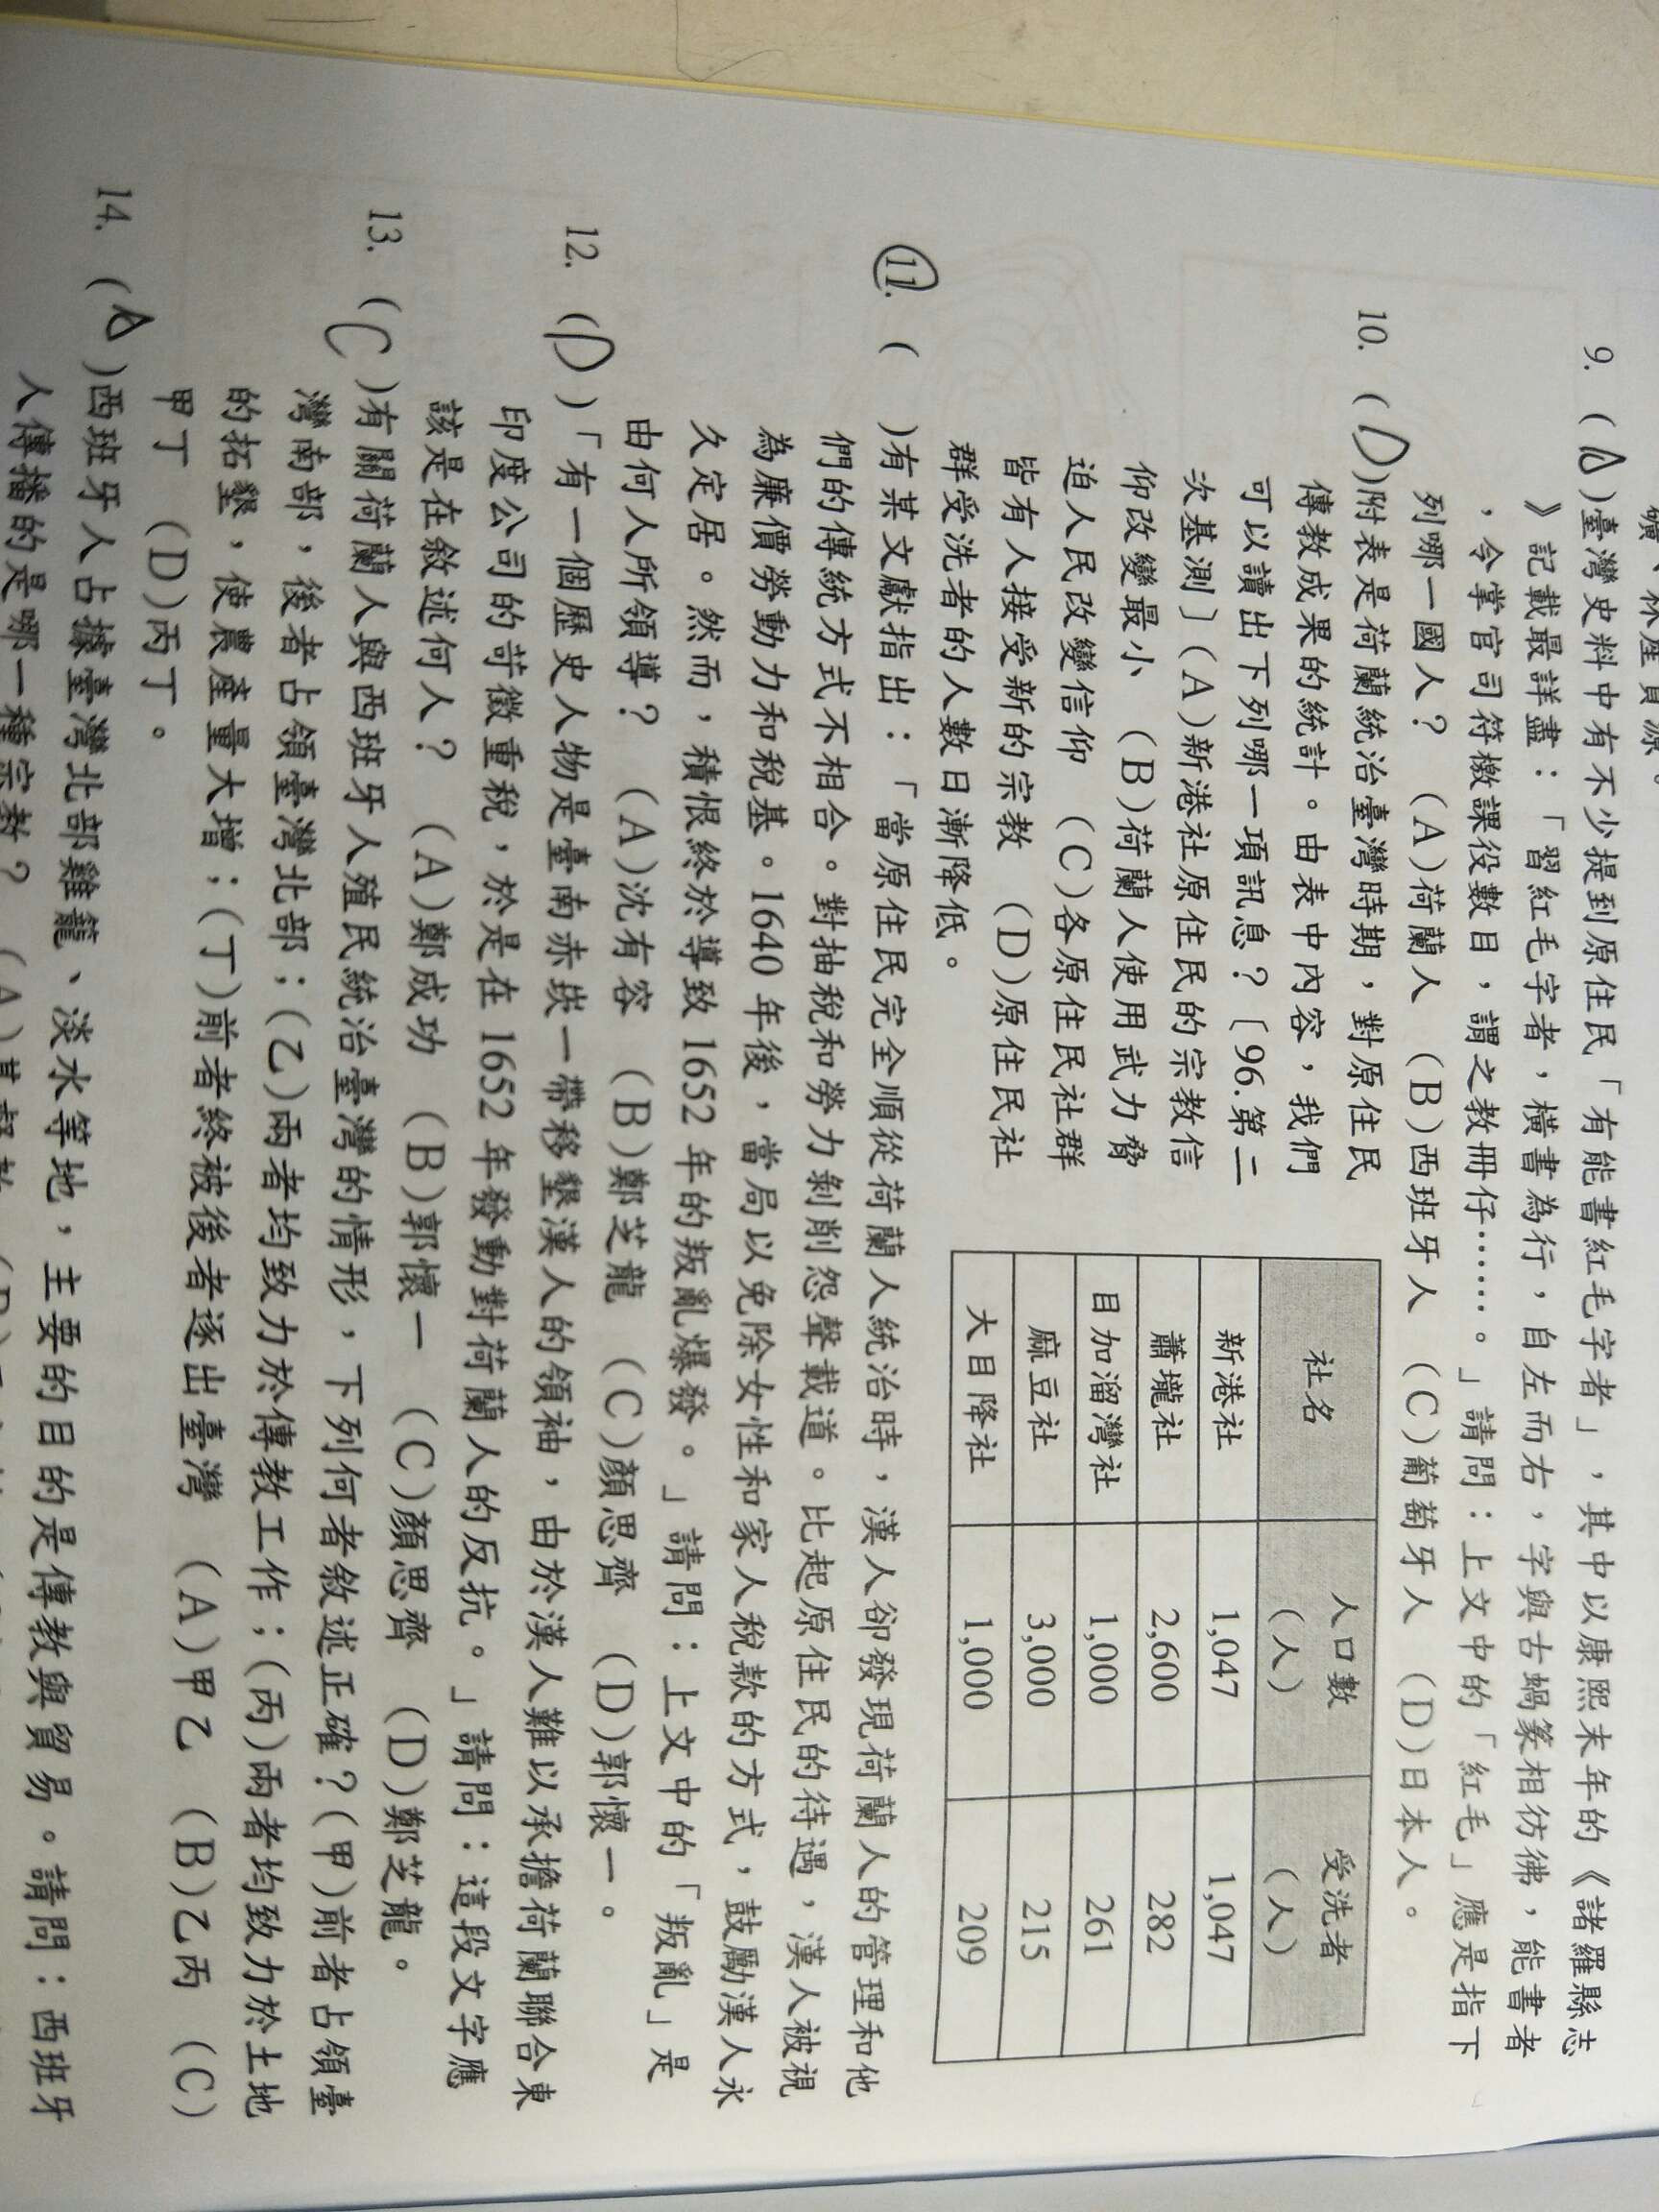 礦、林產資源。
9. (A)臺灣史料中有不少提到原住民「有能書紅毛字者」，其中以康熙末年的《諸羅縣志
》記載最詳盡：「習紅毛字者，橫書為行，自左而右，字與古蝸篆相彷彿，能書者
，令掌官司符檄課役數目，謂之教冊仔……。」請問：上文中的「紅毛」應是指下
列哪一國人？ (A)荷蘭人 (B)西班牙人 (C)葡萄牙人 (D)日本人。
10. (D)附表是荷蘭統治臺灣時期，對原住民
傳教成果的統計。由表中內容，我們
可以讀出下列哪一項訊息？〔96.第二
次基測〕(A)新港社原住民的宗教信
仰改變最小 (B)荷蘭人使用武力脅
迫人民改變信仰 (C)各原住民社群
皆有人接受新的宗教 (D)原住民社
群受洗者的人數日漸降低。
社名 人口數（人） 受洗者（人）
新港社 1,047 1,047
蕭壠社 2,600 282
目加溜灣社 1,000 261
麻豆社 3,000 215
大目降社 1,000 209
11. ( )有某文獻指出：「當原住民完全順從荷蘭人統治時，漢人卻發現荷蘭人的管理和他
們的傳統方式不相合。對抽稅和勞力剝削怨聲載道。比起原住民的待遇，漢人被視
為廉價勞動力和稅基。1640 年後，當局以免除女性和家人稅款的方式，鼓勵漢人永
久定居。然而，積恨終於導致 1652 年的叛亂爆發。」請問：上文中的「叛亂」是
由何人所領導？ (A)沈有容 (B)鄭芝龍 (C)顏思齊 (D)郭懷一。
12. (D)「有一個歷史人物是臺南赤崁一帶移墾漢人的領袖，由於漢人難以承擔荷蘭聯合東
印度公司的苛徵重稅，於是在 1652 年發動對荷蘭人的反抗。」請問：這段文字應
該是在敘述何人？ (A)鄭成功 (B)郭懷一 (C)顏思齊 (D)鄭芝龍。
13. (C)有關荷蘭人與西班牙人殖民統治臺灣的情形，下列何者敘述正確？(甲)前者占領臺
灣南部，後者占領臺灣北部；(乙)兩者均致力於傳教工作；(丙)兩者均致力於土地
的拓墾，使農產量大增；(丁)前者終被後者逐出臺灣 (A)甲乙 (B)乙丙 (C)
甲丁 (D)丙丁。
14. (A)西班牙人占據臺灣北部雞籠、淡水等地，主要的目的是傳教與貿易。請問：西班牙
人傳播的是哪一種宗教？ (A)